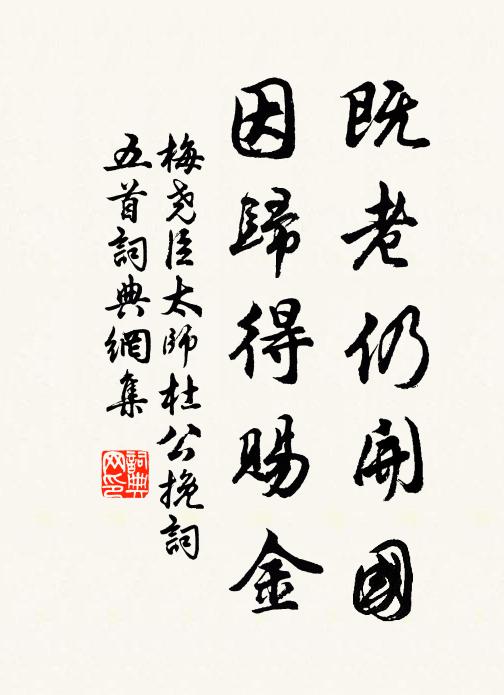 既老仍開國
因歸得賜金
梅尧臣太師杜公挽詞
五首詞典網集
詞典
网印